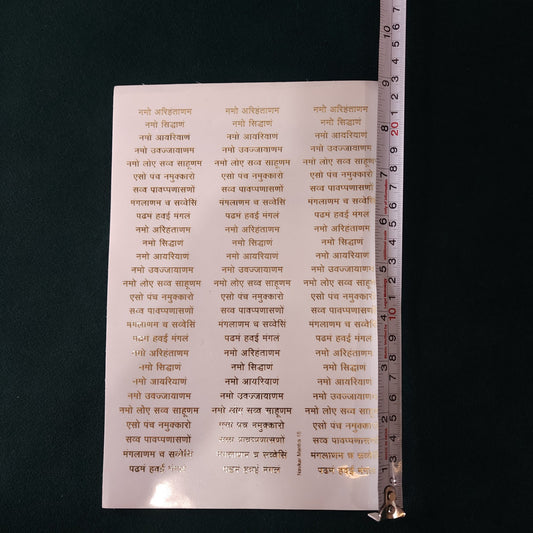 नमो अरिहंताणम नमो अरिहंताणम नमो अरिहंताणम
नमो सिद्धाणं नमो सिद्धाणं नमो सिद्धाणं
नमो आयरियाण नमो आयरियाण नमो आयरियाण
नमो उवज्जायाणम नमो उवज्जायाणम नमो उवज्जायाणम
नमो लोए सव्व साहूणम नमो लोए सव्व साहूणम नमो लोए सव्व साहूणम
एसो पंच नमुक्कारो एसो पंच नमुक्कारो एसो पंच नमुक्कारो
सव्व पावप्पणासणों सव्व पावप्पणासणों सव्व पावप्पणासणों
मंगलाणम च सव्वेसिं मंगलाणम च सव्वेसिं मंगलाणम च सव्वेसिं
पढमं हवई मंगलं पढमं हवई मंगलं पढमं हवई मंगलं
नमो अरिहंताणम नमो अरिहंताणम नमो अरिहंताणम
नमो सिद्धाणं नमो सिद्धाणं नमो सिद्धाणं
नमो आयरियाण नमो आयरियाण नमो आयरियाण
नमो उवज्जायाणम नमो उवज्जायाणम नमो उवज्जायाणम
नमो लोए सव्व साहूणम नमो लोए सव्व साहूणम नमो लोए सव्व
एसो पंच नमुक्कारो एसो पंच नमुक्कारो एसो पंच नमुक्कारो
सव्व पावप्पणासणों सव्व पावप्पणासणों सव्व पावप्पणासणों
मंगलाणम च सव्वेसिं मंगलाणम च सव्वेसिं मंगलाणम च सव्वेसिं
पढमं हवई मंगलं पढमं हवई मंगलं पढमं हवई मंगलं
नमो अरिहंताणम नमो अरिहंताणम नमो अरिहंताणम
नमो सिद्धाणं नमो सिद्धाणं नमो सिद्धाणं
नमो आयरियाण नमो आयरियाण नमो आयरियाण
नमो उवज्जायाणम नमो उवज्जायाणम नमो उवज्जायाणम
नमो लोए सव्व साहूणम नमो लोए सव्व साहूणम नमो लोए सव्व
एसो पंच नमुक्कारो एसो पंच नमुक्कारो एसो पंच नमुक्कारो
सव्व पावप्पणासणों सव्व पावप्पणासणों सव्व पावप्पणासणों
मंगलाणम च सव्वेसिं मंगलाणम च सव्वेसिं मंगलाणम च सव्वेसिं
पढमं हवई मंगलं पढमं हवई मंगलं पढमं हवई मंगलं
Navkar Mantra 15